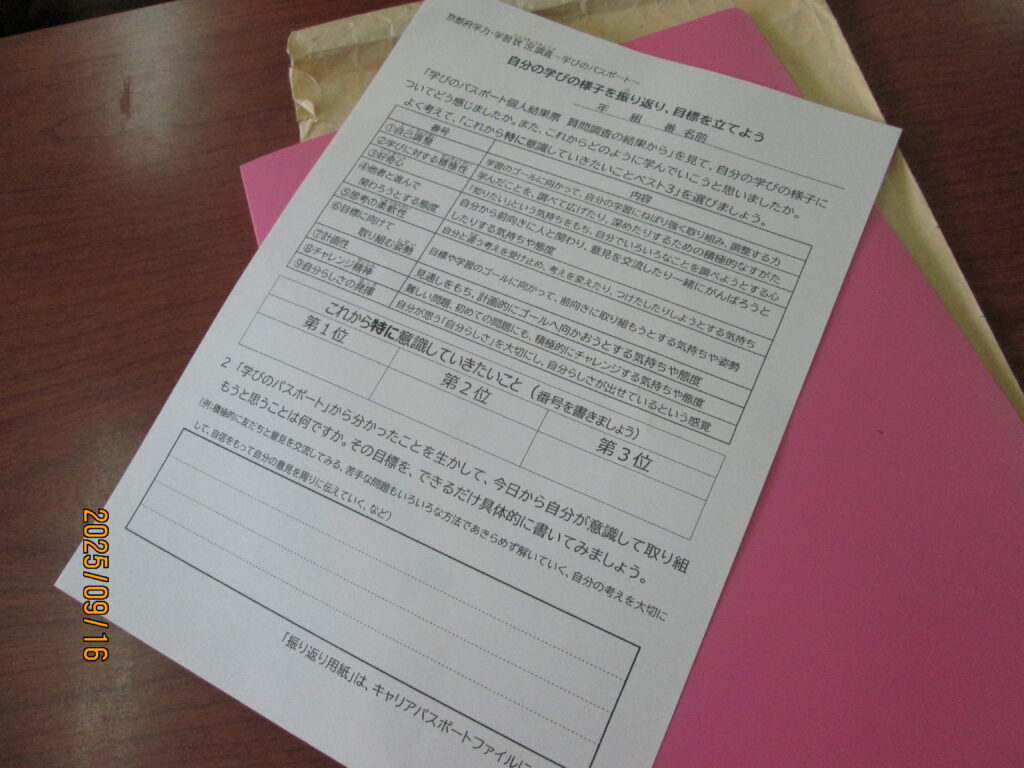 京都府学力・学習状況調査~学びのパスポート~
自分の学びの様子を振り返り、目標を立てよう
年　組　番 名前
「学びのパスポート個人結果票 質問調査の結果から」を見て、自分の学びの様子に
ついてどう感じましたか。また、これからどのように学んでいこうと思いましたか。
よく考えて、「これから特に意識していきたいことベスト3」を選びましょう。
番号　内容
①自己調整　学習のゴールに向かって、自分の学習にねばり強く取り組み、調整する力
②学びに対する積極性　学んだことを、調べて広げたり、深めたりするための積極的なすがた
③好奇心　「知りたい」という気持ちをもち、自分でいろいろなことを調べようとする心
④他者と進んで　自分から前向きに人と関わり、意見を交流したり一緒にがんばろうと
関わろうとする態度　したりする気持ちや態度
⑤思考の柔軟性　自分と違う考えを受け止め、考えを変えたり、つけたしたりしようとする気持ち
⑥目標に向けて　目標や学習のゴールに向かって、前向きに取り組もうとする気持ちや姿勢
取り組む姿勢
⑦計画性　見通しをもち、計画的にゴールへ向かおうとする気持ちや態度
⑧チャレンジ精神　難しい問題、初めての問題にも、積極的にチャレンジする気持ちや態度
⑨自分らしさの発揮　自分が思う「自分らしさ」を大切にし、自分らしさが出せているという感覚
これから特に意識していきたいこと（番号を書きましょう）
第1位　第2位　第3位
2 「学びのパスポート」から分かったことを生かして、今日から自分が意識して取り組
もうと思うことは何ですか。その目標を、できるだけ具体的に書いてみましょう。
(例:積極的に友だちと意見を交流してみる、苦手な問題もいろいろな方法であきらめず解いていく、自分の考えを大切に
して、自信をもって自分の意見を周りに伝えていく、など)
「振り返り用紙」は、キャリアパスポートファイルに
2025/09/16